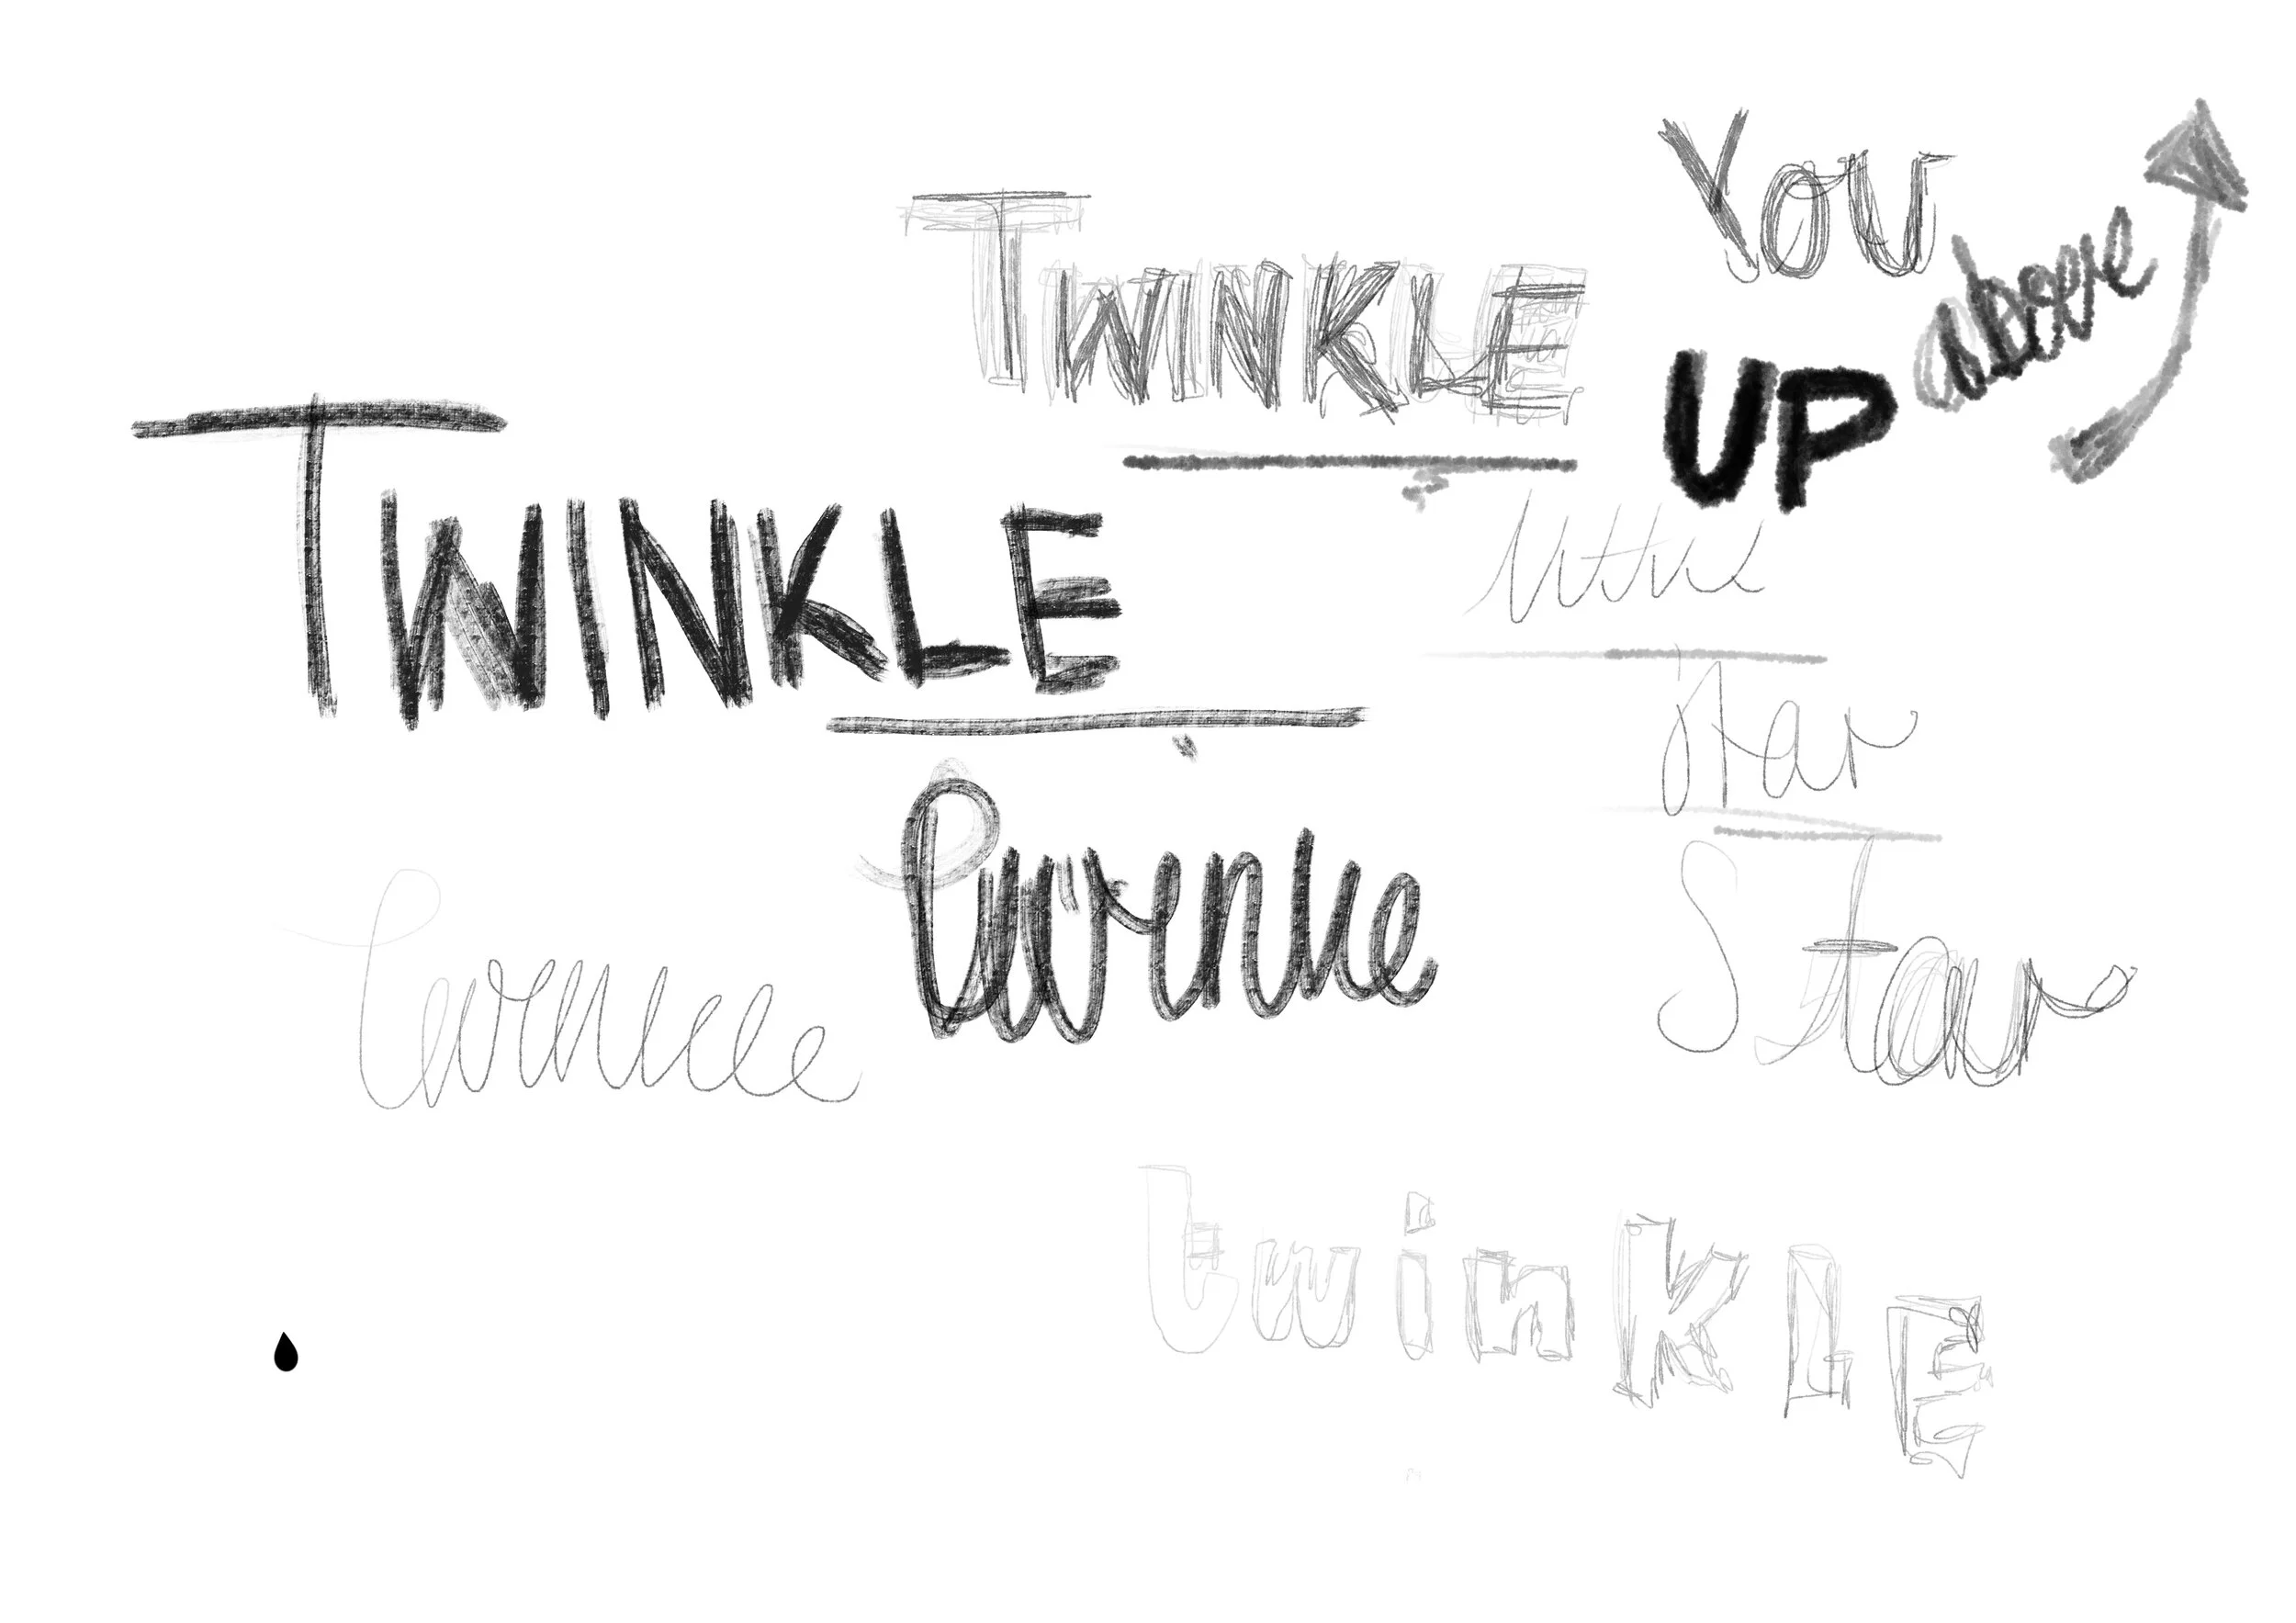 You
TWINKLE
above
UP
TWINKLE
little
star
twinke
Star
twinkle
twinklE